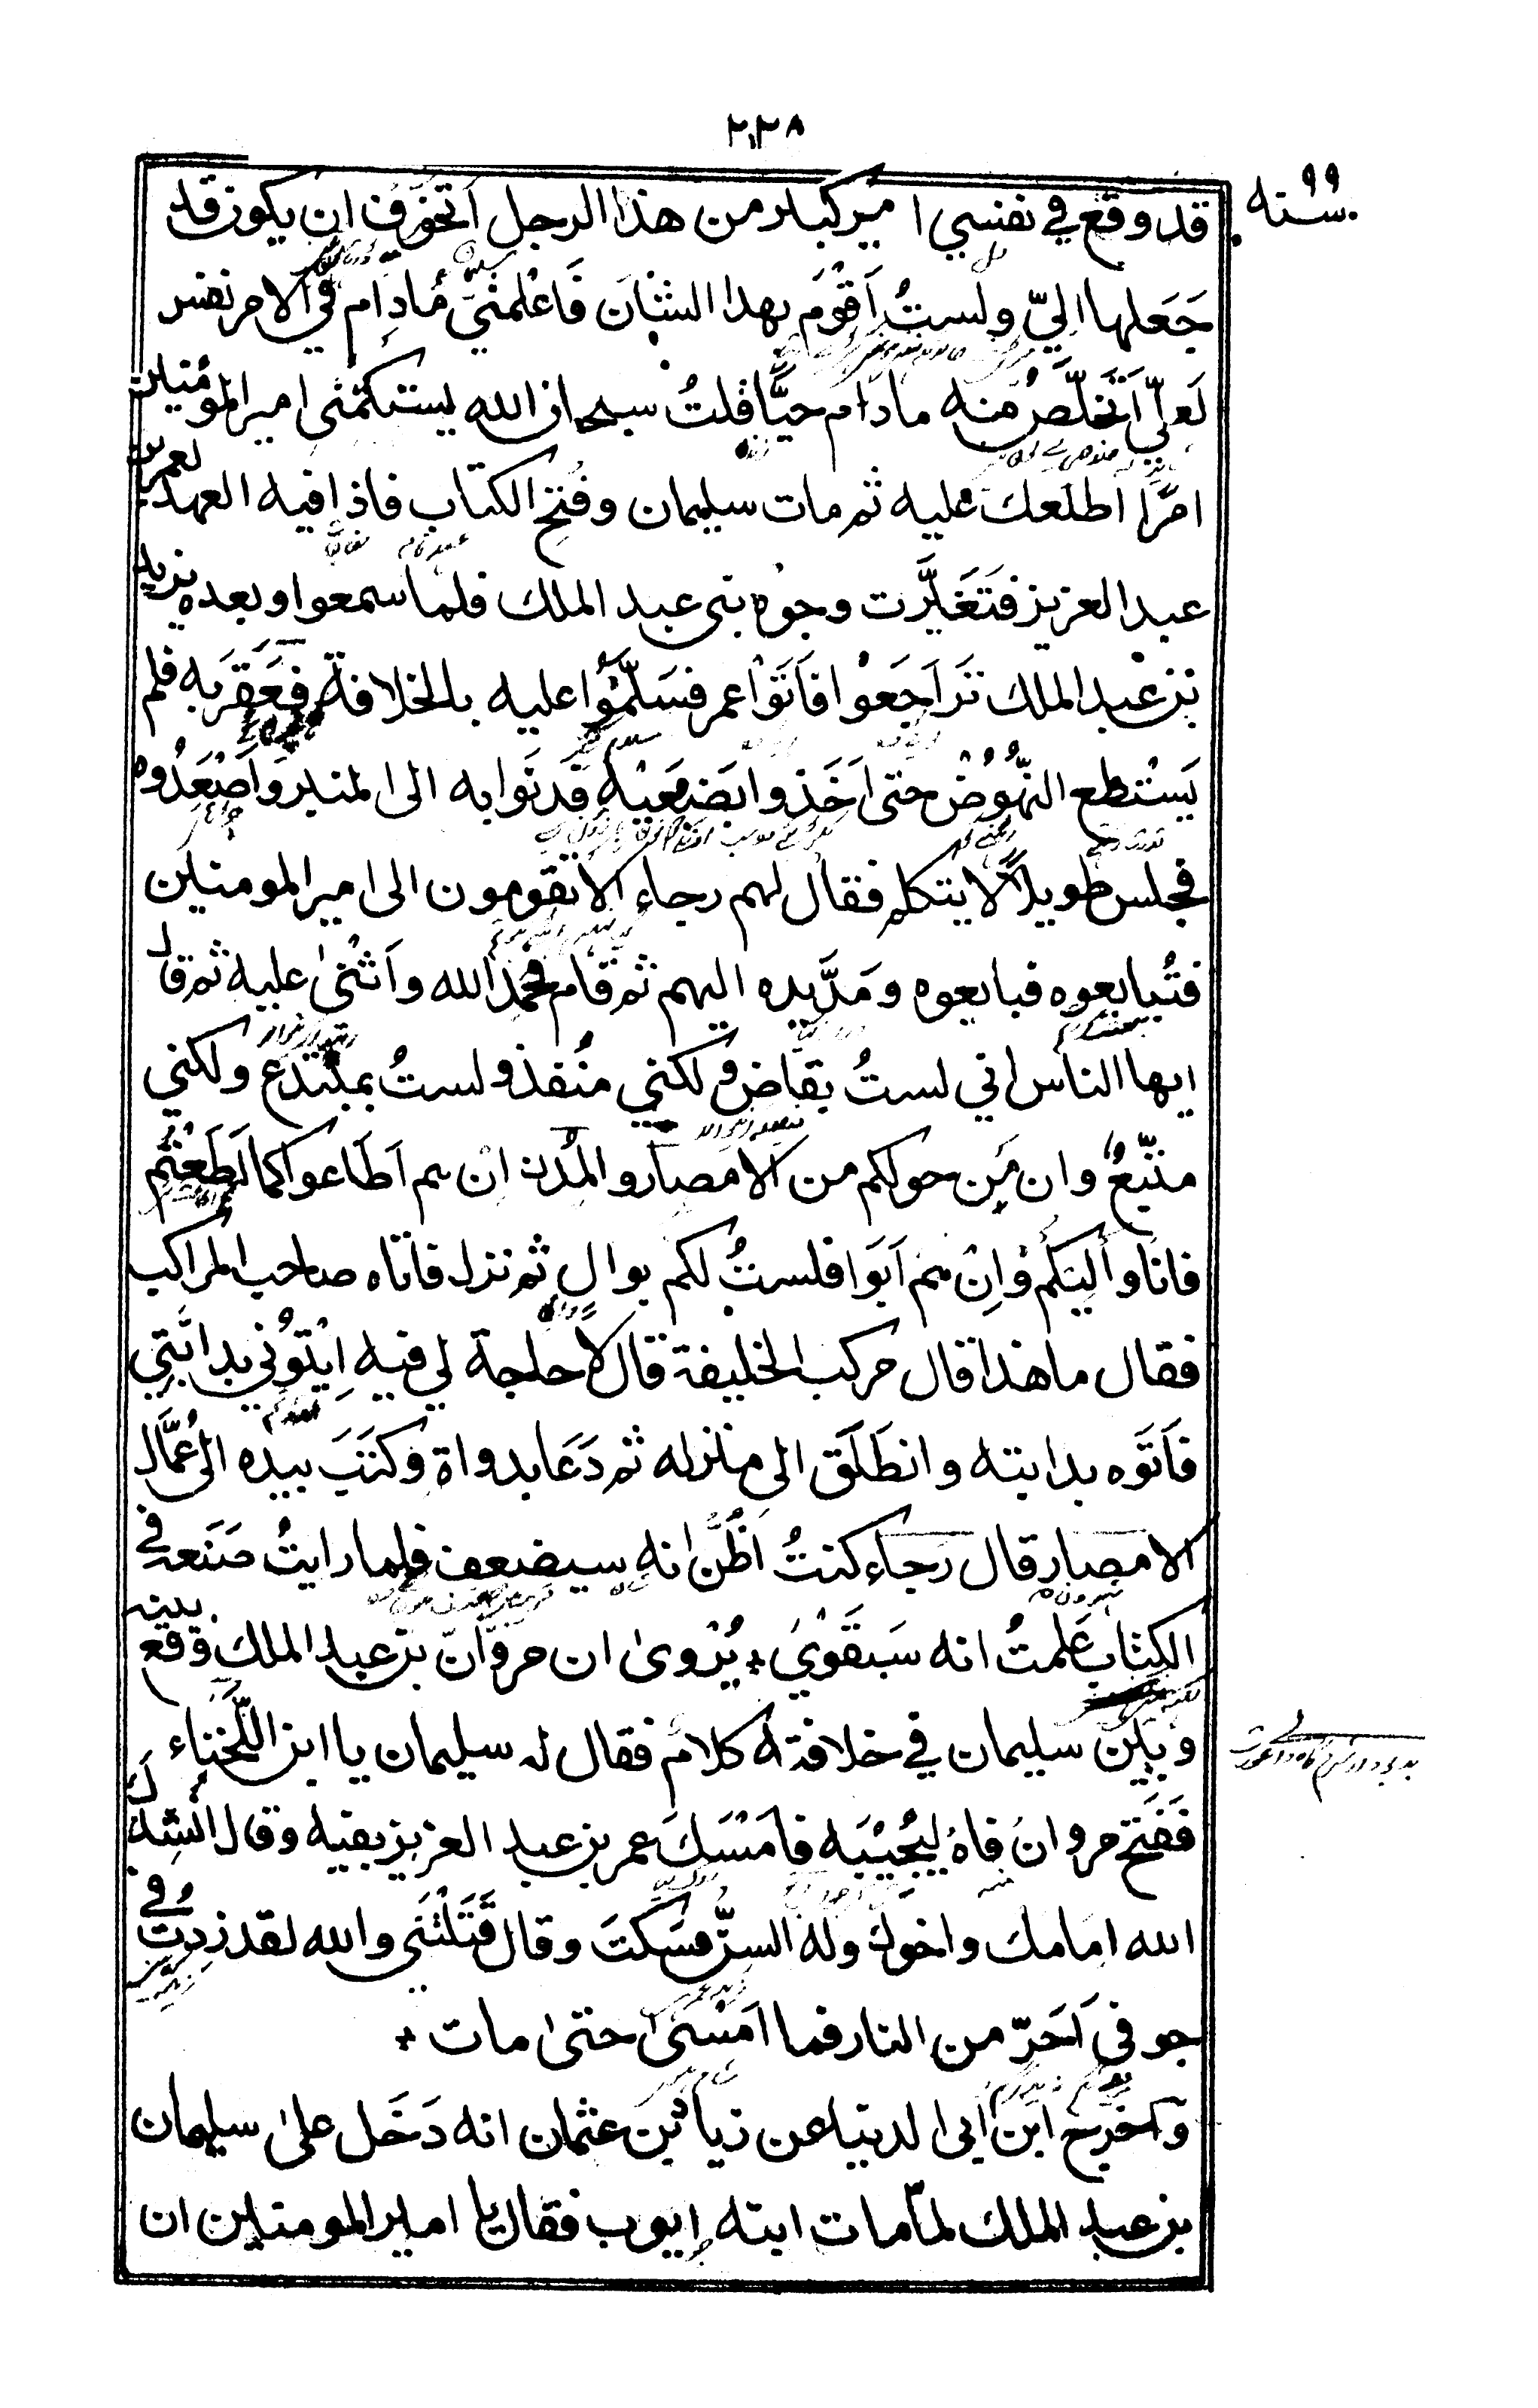 ٢٣٨
سنة ٩٩
قد وقع في نفسي امر كبير من هذا الرجل اَتخوّف ان يكون قد
جَعَلها اليّ ولستُ اَقوْم بهذا الشان فَاعْلمْني مَادام في الامر نفس
لَعلّي اَتخلّصُ منه مادام حيًّا قلتُ سبحان الله يستكتمنى امير المومنين
امرًا اطلعك عليه ثم مات سليمان وفُتح الكتاب فاذا فيه العهد لعمر بن
عبد العزيز فتَغيَّرت وجوْه بنى عبد الملك فلما سمعوا وبعده يزيد
بن عبد الملك تَرَاجَعوْا فاَتَوْا عمر فسَلَّمُوْا عليه بالخلافة فعَقَرَ به فلم
يَسْتطع النهُّوُضْ حتى اَخَذوا بضَبعَيْه فَدنَوا به الى المنبر واَصْعَدُوه
فجلس طويلاً لا يتكلم فقال لهم رجاء الا تقومون الى امير المومنين
فتُبايعوه فبايعوه ومَدَّ يده اليهم ثم قام فحمد الله واَثنىٰ عليه ثم قال
ايها الناس اني لستُ بقاضٍ ولكني مُنفذ ولستُ بمبتدع ولكني
متّبعٌ وان مَن حولكم من الامصار والمُدن ان هم اَطَاعوا كما اَطَعْتُم
فانا واليكُم وَاِنْ هم اَبَوا فلستُ لكم بوالٍ ثم نزل فاَتاه صاحب المراكب
فقال ما هذا قال مركب الخليفة قال لا حاجة لي فيه اِيْتوُني بدابّتي
فاَتَوه بدابته وانطَلَق الى منزله ثم دَعَا بدواة وكتَبَ بيده الى عُمَّال
الامصار قال رَجاء كنتُ اَظُنّ انه سيضعف فلما رايتُ صَنَعه في
الكتاب عَلمتُ انه سَيَقْوٰى * يُرْوىٰ ان مروانَ بن عبد الملك وَقع بينه
وبين سليمان في خلافته كلامٌ فقال له سليمان يا ابن اللَّخْناء
فَفتَح مروانُ فاهُ ليُجيْبَه فاَمْسَكَ عمر بن عبد العزيز بفيه وقال اَنشدُك
الله امامك واخوك وله السنُّ فسَكتَ وقال قَتَلْتَنى والله لقد زِدتَ في
جوفى اَحَرّ من النار فما اَمْسىٰ حتىٰ مات *
واَخرج ابن ابى الدنيا عن زياد بن عثمان انه دَخَل علىٰ سليمان
بن عبد الملك لمّا مات ابنه ايوب فقال يا امير المومنين ان